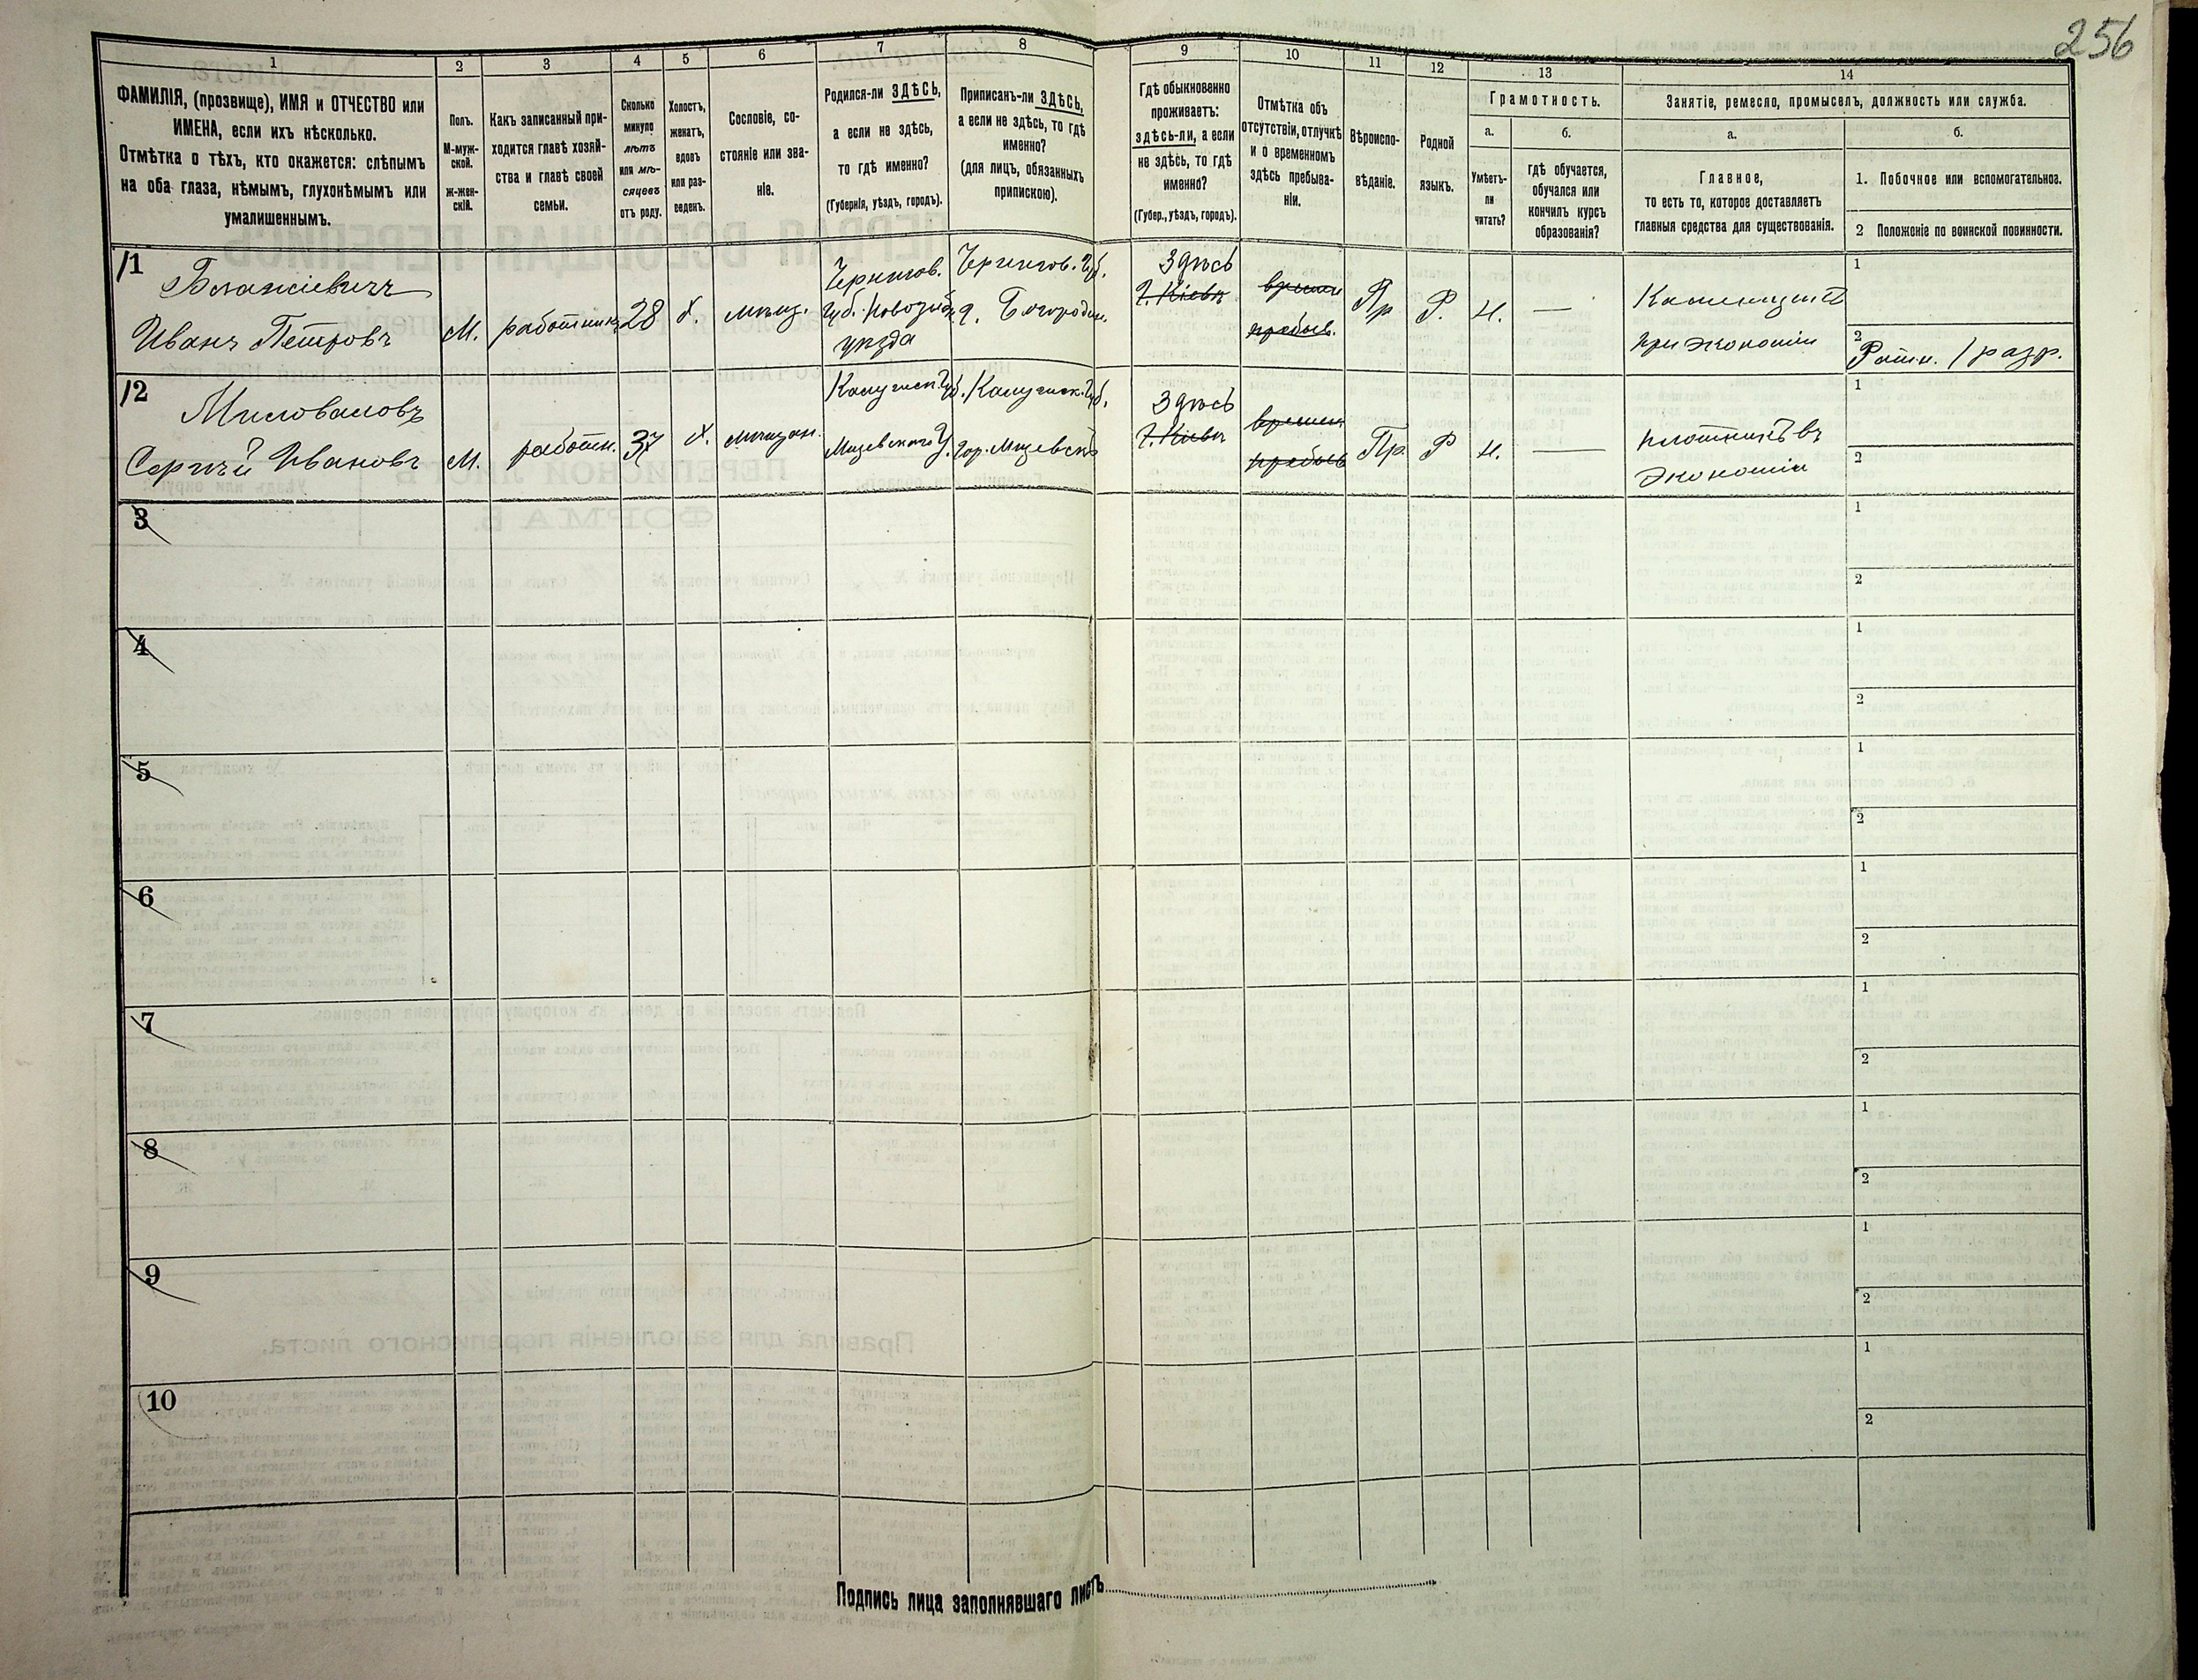 256
1
ФАМИЛІЯ, (прозвище), ИМЯ и ОТЧЕСТВО или
ИМЕНА, если ихъ нѣсколько.
Отмѣтка о тѣхъ, кто окажется: слѣпымъ
на оба глаза, нѣмымъ, глухонѣмымъ или
умалишеннымъ.
2
Полъ.
М-муж-
ской.
ж-жен-
скій.
3
Какъ записанный при-
ходится главѣ хозяй-
ства и главѣ своей
семьи.
4
Сколько
минуло
лѣтъ
или мѣ-
сяцевъ
отъ роду.
5
Холостъ,
женатъ,
вдовъ
или раз-
веденъ.
6
Сословіе, со-
стояніе или зва-
ніе.
7
Родился-ли ЗДѢСЬ,
а если не здѣсь,
то гдѣ именно?
(Губернія, уѣздъ, городъ).
8
Приписанъ-ли ЗДѢСЬ,
а если не здѣсь, то гдѣ
именно?
(для лицъ, обязанныхъ
припискою).
9
Гдѣ обыкновенно
проживаетъ:
здѣсь-ли, а если
не здѣсь, то гдѣ
именно?
(Губер., уѣздъ, городъ).
10
Отмѣтка объ
отсутствіи, отлучкѣ
и о временномъ
здѣсь пребыва-
ніи.
11
Вѣроиспо-
вѣданіе.
12
Родной
языкъ.
13
Грамотность.
а.
Умѣетъ-
ли
читать?
б.
гдѣ обучается,
обучался или
кончилъ курсъ
образованія?
14
Занятіе, ремесло, промыселъ, должность или служба.
а.
Главное,
то есть то, которое доставляетъ
главныя средства для существованія.
б.
1. Побочное или вспомогательное.
2 Положеніе по воинской повинности.
11
Иванъ Петровъ
М.
работникъ
28
х.
мѣщ.
Чернигов.
Губ. Новозыб.
уѣзда
Чернигов. Губ.
Здѣсь
г. Кіевъ
времен
пребыв.
Пр
Р.
Н.
—
при экономіи
1
2
Ратн. 1 разр.
12
Миловановъ
Сергѣй Ивановъ
М.
работн.
37
х.
мѣщан.
Калужск. Губ.
Калужск. Губ.
Гор. Мещевскъ
Здѣсь
г. Кіевъ
времен
пребыв
Пр.
Р
Н.
—
плотникъ въ
экономіи
1
2
3
1
2
4
1
2
5
1
2
6
1
2
7
1
2
8
1
2
9
1
2
10
1
2
Подпись лица заполнявшаго листъ